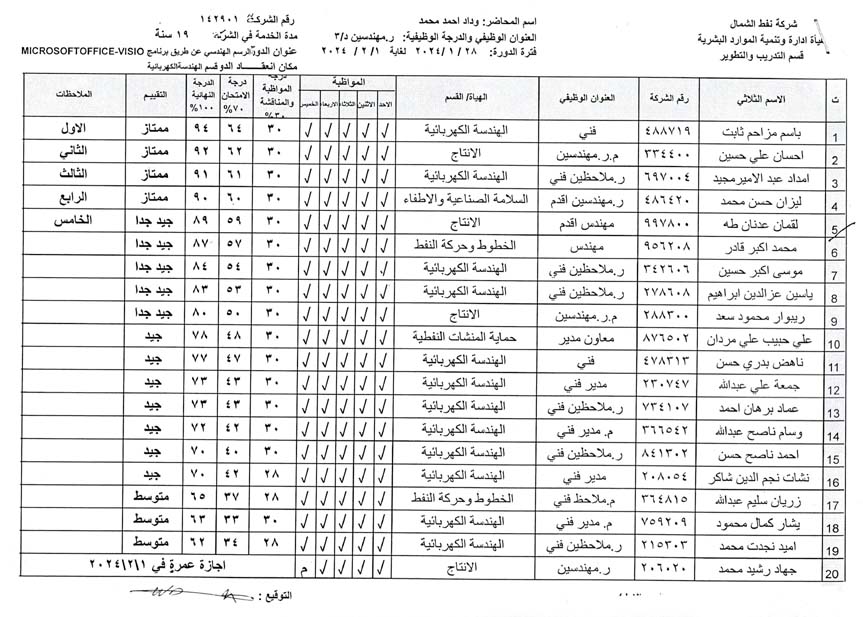 شركة نفط الشمال
هيأة ادارة وتنمية الموارد البشرية
قسم التدريب والتطوير
اسم المحاضر: وداد احمد محمد
العنوان الوظيفي والدرجة الوظيفية: ر.مهندسين د/٣
فترة الدورة: ٢٨ / ١ / ٢٠٢٤ لغاية ١ / ٢ / ٢٠٢٤
رقم الشركة: ١٤٢٩٠١
مدة الخدمة في الشركة: ١٩ سنة
عنوان الدورة: الرسم الهندسي عن طريق برنامج MICROSOFTOFFICE-VISIO
مكان انعقاد الدورة: قسم الهندسة الكهربائية
ت الاسم الثلاثي رقم الشركة العنوان الوظيفي الهيأة/ القسم المواظبة درجة المواظبة والمناقشة ٣٠% درجة الامتحان ٧٠% الدرجة النهائية ١٠٠% التقييم الملاحظات
الاحد الاثنين الثلاثاء الاربعاء الخميس
1 باسم مزاحم ثابت ٤٨٨٧١٩ فني الهندسة الكهربائية √ √ √ √ √ ٣٠ ٦٤ ٩٤ ممتاز الاول
2 احسان علي حسين ٣٣٤٤٠٠ م.ر.مهندسين الانتاج √ √ √ √ √ ٣٠ ٦٢ ٩٢ ممتاز الثاني
3 امداد عبد الاميرمجيد ٦٩٧٠٠٤ ر.ملاحظين فني الهندسة الكهربائية √ √ √ √ √ ٣٠ ٦١ ٩١ ممتاز الثالث
4 ليزان حسن محمد ٤٨٦٤٢٠ ر.مهندسين اقدم السلامة الصناعية والاطفاء √ √ √ √ √ ٣٠ ٦٠ ٩٠ ممتاز الرابع
5 لقمان عدنان طه ٩٩٧٨٠٠ مهندس اقدم الانتاج √ √ √ √ √ ٣٠ ٥٩ ٨٩ جيد جدا الخامس
6 محمد اكبر قادر ٩٥٦٢٠٨ مهندس الخطوط وحركة النفط √ √ √ √ √ ٣٠ ٥٧ ٨٧ جيد جدا
7 موسى اكبر حسين ٣٤٢٦٠٦ ر.ملاحظين فني الهندسة الكهربائية √ √ √ √ √ ٣٠ ٥٤ ٨٤ جيد جدا
8 ياسين عزالدين ابراهيم ٢٧٨٦٠٨ ر.ملاحظين فني الهندسة الكهربائية √ √ √ √ √ ٣٠ ٥٣ ٨٣ جيد جدا
9 ريبوار محمود سعد ٢٨٨٣٠٠ م.ر.مهندسين الانتاج √ √ √ √ √ ٣٠ ٥٠ ٨٠ جيد جدا
10 علي حبيب علي مردان ٨٧٦٥٠٢ معاون مدير حماية المنشات النفطية √ √ √ √ √ ٣٠ ٤٨ ٧٨ جيد
11 ناهض بدري حسن ٤٧٨٣١٣ فني الهندسة الكهربائية √ √ √ √ √ ٣٠ ٤٧ ٧٧ جيد
12 جمعة علي عبدالله ٢٣٠٧٤٧ مدير فني الهندسة الكهربائية √ √ √ √ √ ٣٠ ٤٣ ٧٣ جيد
13 عماد برهان احمد ٧٣٤١٠٧ ر.ملاحظين فني الهندسة الكهربائية √ √ √ √ √ ٣٠ ٤٣ ٧٣ جيد
14 وسام ناصح عبدالله ٣٦٦٥٤٢ م. مدير فني الهندسة الكهربائية √ √ √ √ √ ٣٠ ٤٢ ٧٢ جيد
15 احمد ناصح حسن ٨٤١٣٠٢ ر.ملاحظين فني الهندسة الكهربائية √ √ √ √ √ ٣٠ ٤٠ ٧٠ جيد
16 نشات نجم الدين شاكر ٢٠٨٠٥٤ مدير فني الهندسة الكهربائية √ √ √ √ √ ٢٨ ٤٢ ٧٠ جيد
17 زريان سليم عبدالله ٣٦٤٨١٥ م.ملاحظ فني الخطوط وحركة النفط √ √ √ √ √ ٢٨ ٣٧ ٦٥ متوسط
18 يشار كمال محمود ٧٥٩٢٠٩ م.مدير فني الهندسة الكهربائية √ √ √ √ √ ٣٠ ٣٣ ٦٣ متوسط
19 اميد نجدت محمد ٢١٥٣٠٣ ر.ملاحظين فني الهندسة الكهربائية √ √ √ √ √ ٢٨ ٣٤ ٦٢ متوسط
20 جهاد رشيد محمد ٢٠٦٠٢٠ ر.مهندسين الانتاج √ √ √ √ م اجازة عمرة في ٢٠٢٤/٢/١
التوقيع :